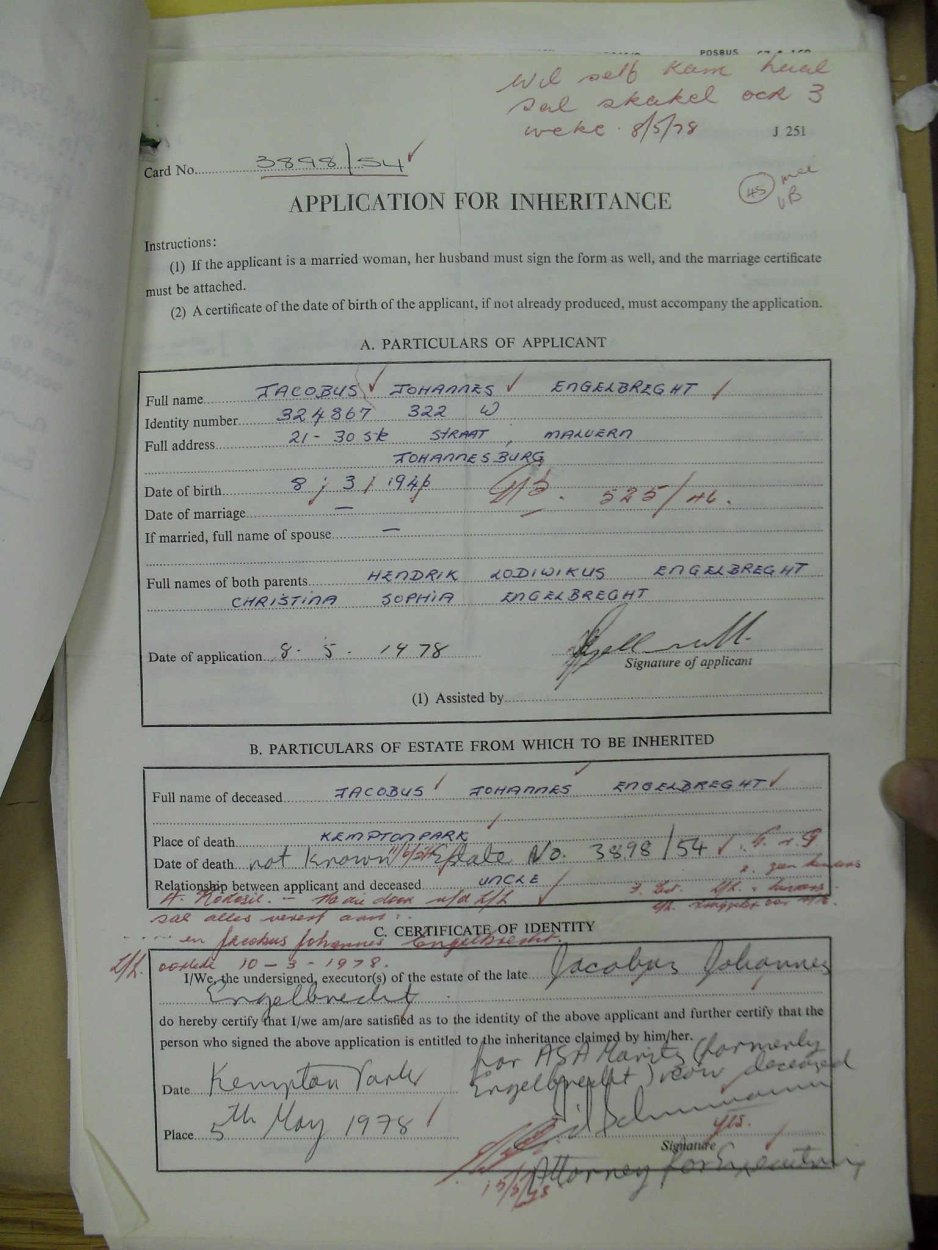 POSBUS
Wil self kom haal
sal skakel oor 3
weke. 8/5/78
J 251
Card No. 3898/54
45
APPLICATION FOR INHERITANCE
Instructions:
(1) If the applicant is a married woman, her husband must sign the form as well, and the marriage certificate
must be attached.
(2) A certificate of the date of birth of the applicant, if not already produced, must accompany the application.
A. PARTICULARS OF APPLICANT
Full name JACOBUS JOHANNES ENGELBREGHT
Identity number 324867 322 W
Full address 21 - 30 ste STRAAT, MALVERN
JOHANNESBURG
Date of birth 8 / 3 / 1946 525/46.
Date of marriage —
If married, full name of spouse —
Full names of both parents HENDRIK LODIWIKUS ENGELBREGHT
CHRISTINA SOPHIA ENGELBREGHT
Date of application 8. 5. 1978
Signature of applicant
(1) Assisted by
B. PARTICULARS OF ESTATE FROM WHICH TO BE INHERITED
Full name of deceased JACOBUS JOHANNES ENGELBREGHT
Place of death KEMPTONPARK
Date of death not known Estate No. 3898/54
Relationship between applicant and deceased UNCLE
sal alles vererf aan:
en Jacobus Johannes Engelbrecht.
C. CERTIFICATE OF IDENTITY
10-3-1978.
I/We, the undersigned, executor(s) of the estate of the late Jacobus Johannes
Engelbrecht
do hereby certify that I/we am/are satisfied as to the identity of the above applicant and further certify that the
person who signed the above application is entitled to the inheritance claimed by him/her.
for ASA Maritz (formerly
Date Kempton Park Engelbrecht) now deceased
Place 5th May 1978
yes.
Signature
Attorney for Executrix